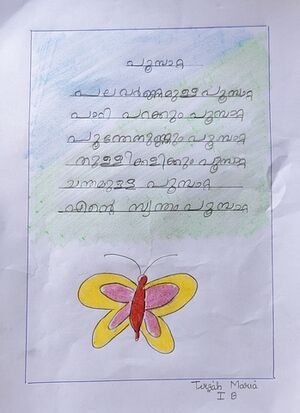 പൂമ്പാറ്റ
പല വർണ്ണമുള്ള പൂമ്പാറ്റ
പാറി പറക്കും പൂമ്പാറ്റ
പൂന്തേനുണ്ണും പൂമ്പാറ്റ
തുള്ളികളിക്കും പൂമ്പാറ്റ
ചന്തമുള്ള പൂമ്പാറ്റ
എന്റെ സ്വന്തം പൂമ്പാറ്റ
Tirzah Maria
I B